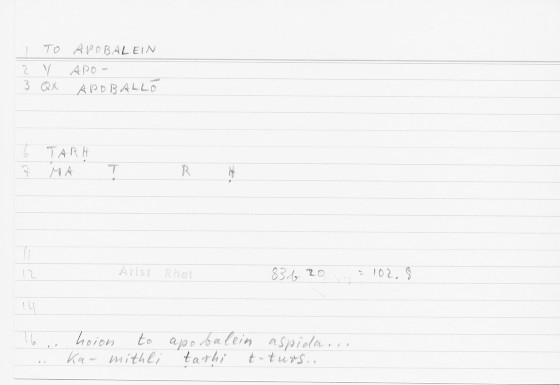 1 TO APOBALEIN
2 V APO-
3 QX APOBALLŌ
6 ṬARḤ
7 MA Ṭ R Ḥ
11
12 Arist Rhet 83b 20 = 102.8
14
16 .. hoion to apobalein aspida...
.. ka-mithli ṭarḥi t-turs..